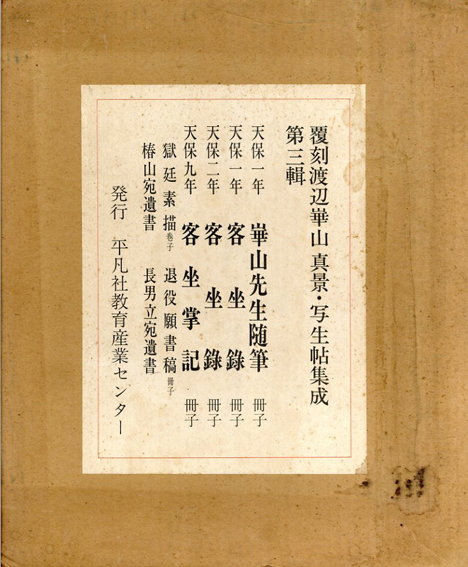 覆刻渡辺崋山 真景・写生帖集成
第三輯
天保一年 崋山先生随筆 冊子
天保一年 客坐錄 冊子
天保二年 客坐錄 冊子
天保九年 客坐掌記 冊子
獄廷素描 巻子 退役願書稿 冊子
椿山宛遺書 長男立宛遺書
発行 平凡社教育産業センター